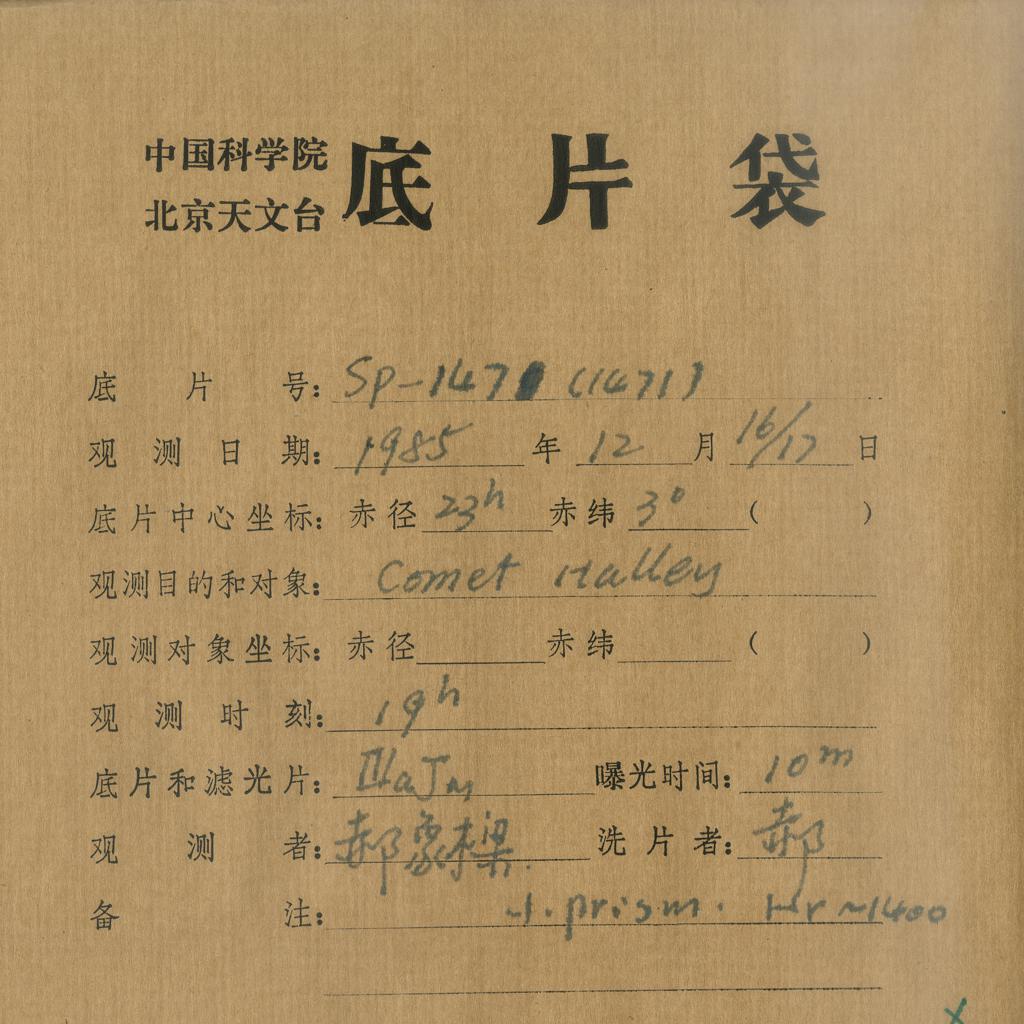 中国科学院
北京天文台
底片袋
底片号: Sp-1471 (1471)
观测日期: 1985 年 12 月 16/17 日
底片中心坐标: 赤径 23h 赤纬 3° ( )
观测目的和对象: Comet Halley
观测对象坐标: 赤径 赤纬 ( )
观测时刻: 19h
底片和滤光片: IIIaJ 曝光时间: 10m
观测者: 郝象樑 洗片者: 郝
备注: prism. ~1400